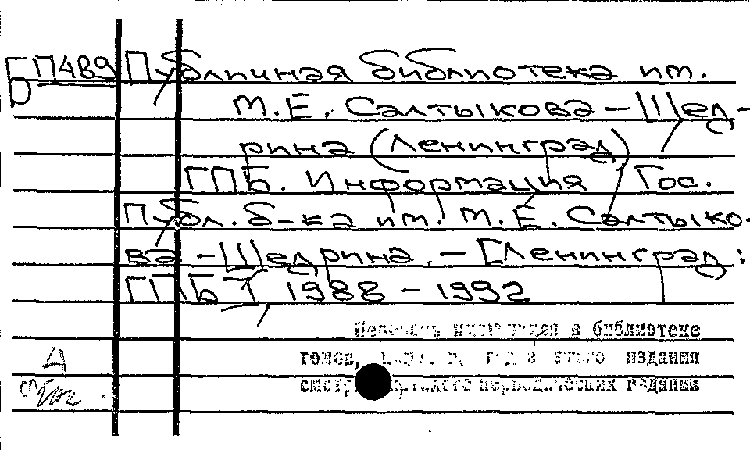 Б П489 Публичная библиотека им.
М.Е. Салтыкова-Щед-
рина (Ленинград)
ГПБ. Информация Гос.
Публ. б-ка им. М.Е. Салтыко-
ва-Щедрина. - [Ленинград:
ГПБ] 1988-1992
в библиотеке
томов, издания
периодических издания